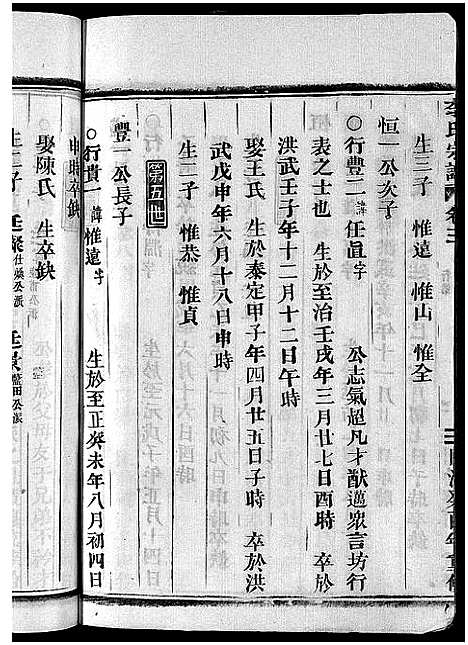 李氏宗譜 卷三
生三子 惟遠 惟山 惟全
恒一公次子
○行豐二 諱任眞 字 公志氣超凡才猷邁衆言坊行
表之士也 生於至治壬戌年三月廿七日酉時 卒於
洪武壬子年十二月十二日午時
娶王氏 生於泰定甲子年四月廿五日子時 卒於洪
武戊申年六月十八日申時
生二子 惟恭 惟貞
第五世
豐一公長子
○行貴一 諱惟遠 字 生於至正癸未年八月初四日
申時卒缺
娶陳氏 生卒缺
生二子 廷 仕 公派 廷 藍田公派